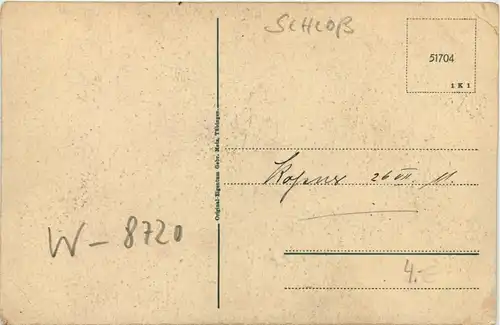 SCHLOß
51704
1 K 1
Original-Eigentum Gebr. Metz, Tübingen
26 VII 11.
W - 8720
4.-